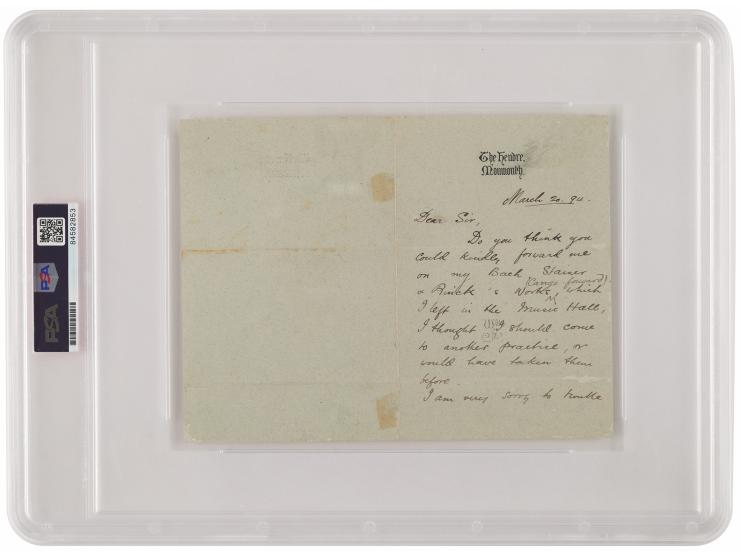 The Hendre,
Monmouth.
March 20. 94.
Dear Sir,
Do you think you
could kindly forward me
on my Bach Stainer
(Cange foward)
& Rinck's Works, which
I left in the Music Hall,
I thought I should come
to another practice, or
would have taken them
before.
I am very sorry to trouble
PSA
PSA
84582853